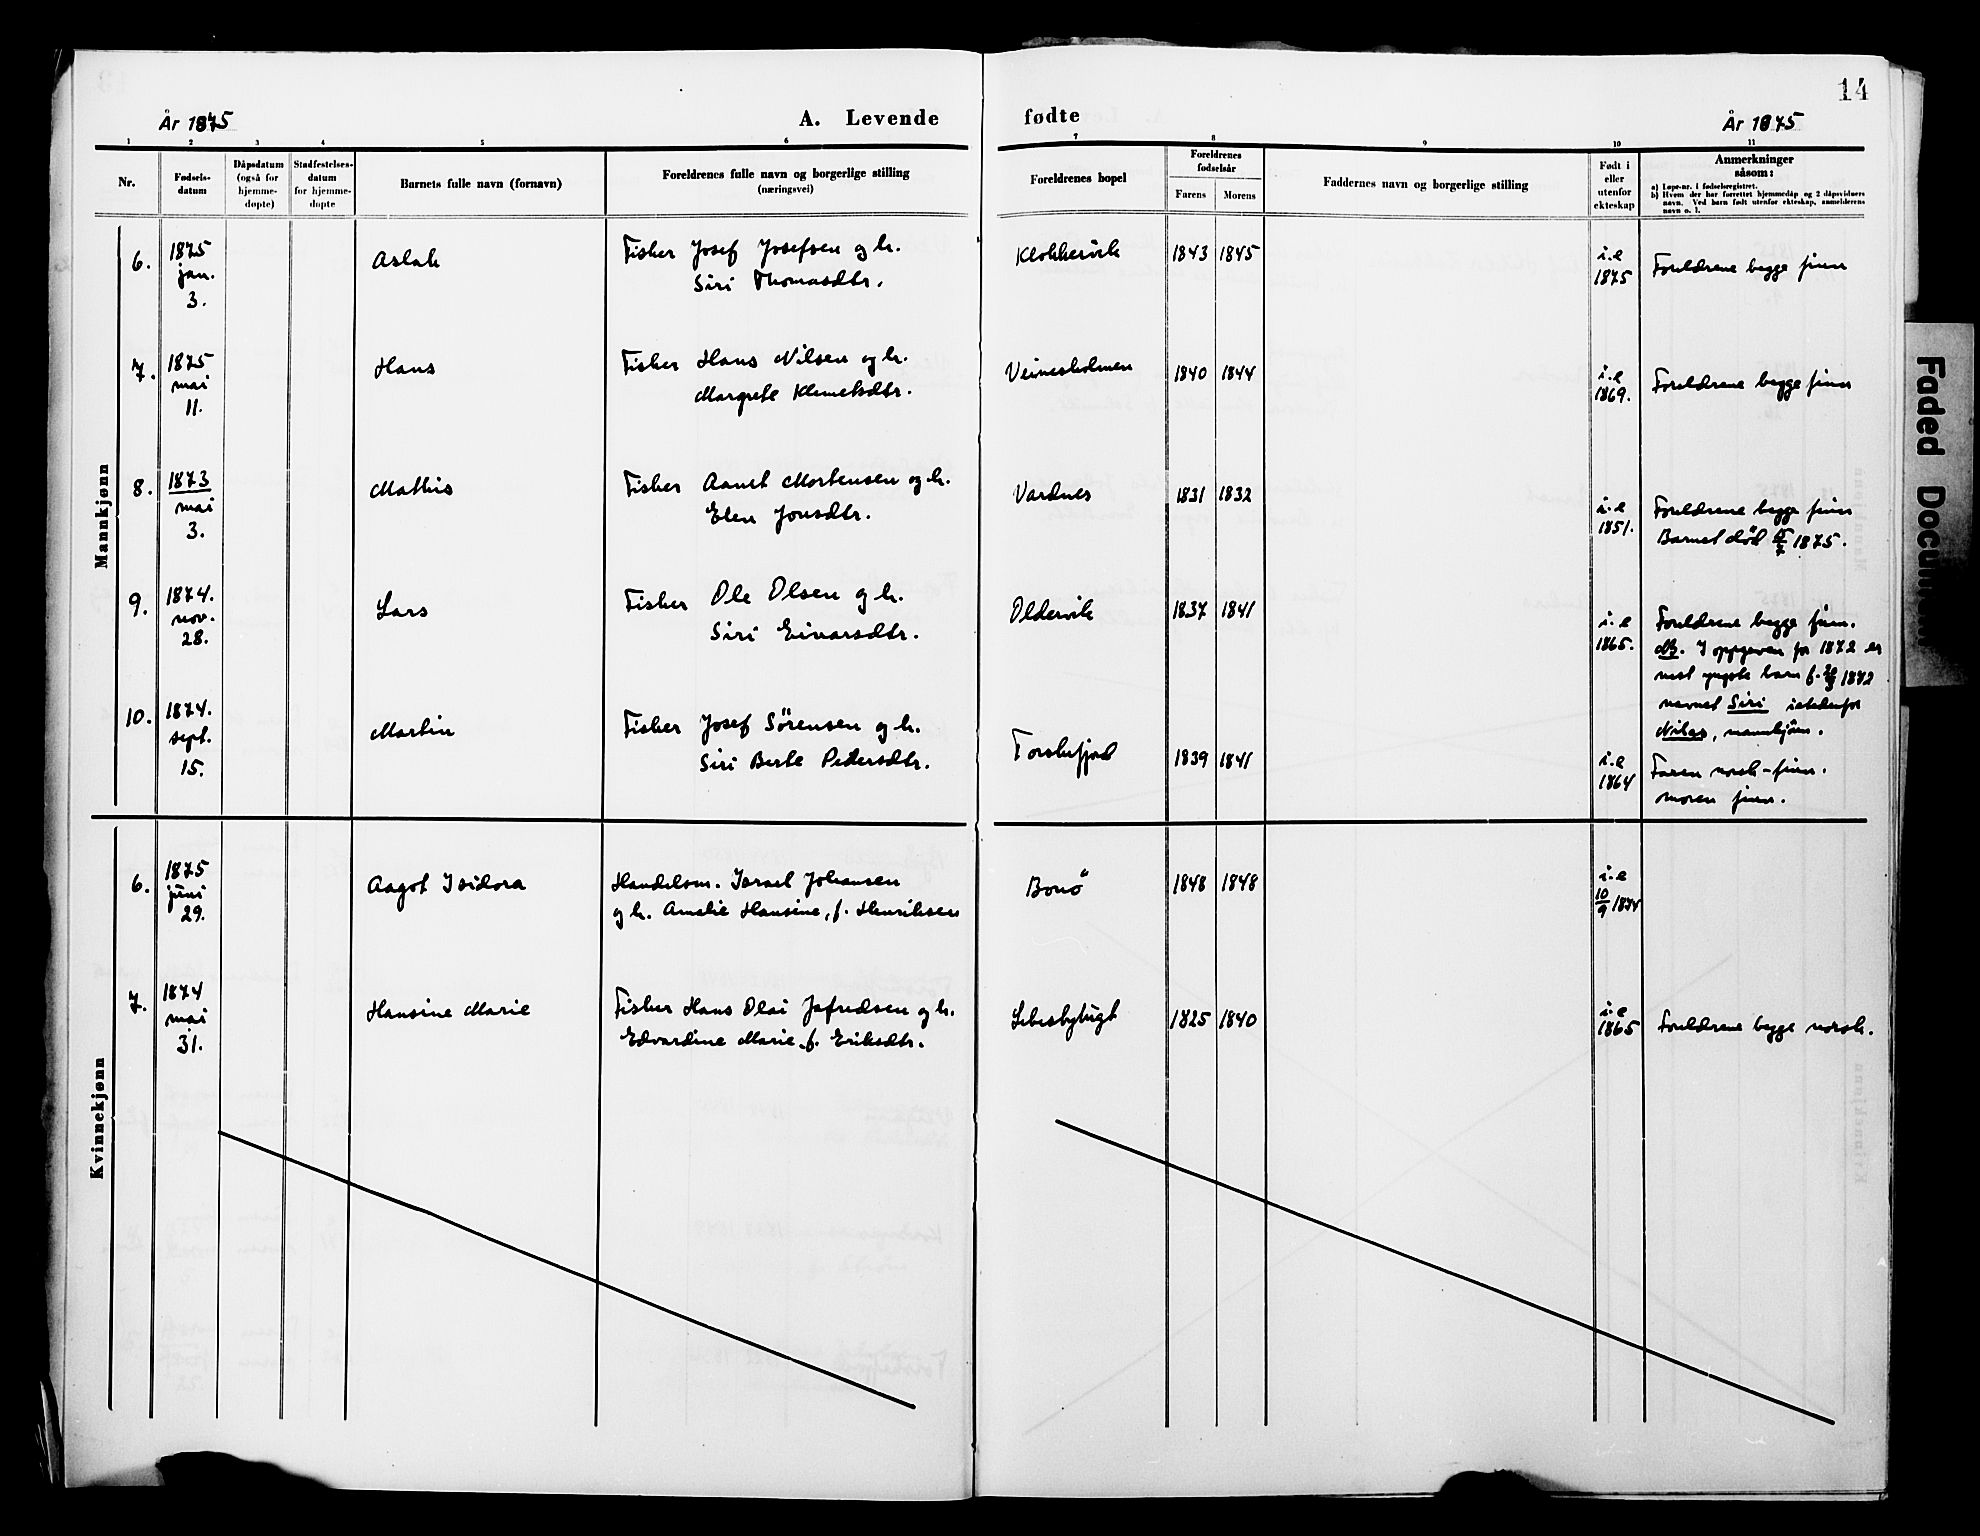 14
År 1875
A. Levende fødte
År 1875
1 2 3 4 5 6 7 8 9 10 11
Nr.
Fødsels-
datum
Dåpsdatum
(også for
hjemme-
døpte)
Stadfestelses-
datum
for hjemme-
døpte
Barnets fulle navn (fornavn)
Foreldrenes fulle navn og borgerlige stilling
(næringsvei)
Foreldrenes bopel
Foreldrenes
fødselsår
Farens Morens
Faddernes navn og borgerlige stilling
Født i
eller
utenfor
ekteskap
Anmerkninger
såsom:
a) Løpe-nr. i fødselsregistret.
b) Hvem der har forrettet hjemmedåp og 2 dåpsvidners
navn. Ved barn født utenfor ekteskap, anmelderens
navn o. l.
Mannkjønn
6.
1875
jan.
3.
Aslak
Fisker Josef Josefsen og h.
Siri Thomasdtr.
Klokkervik
1843 1845
i.e
1875
Foreldrene begge finn
7.
1875
mai
11.
Hans
Fisker Hans Nilsen og h.
Margrete Klemetsdtr.
Veinesholmen
1840 1844
i.e
1869.
Foreldrene begge finn
8.
1873
mai
3.
Mathis
Fisker Aanet Mortensen og h.
Elen Jonsdtr.
Vardnes
1831 1832
i.e
1851.
Foreldrene begge finn
Barnet död 1875.
9.
1874.
nov.
28.
Lars
Fisker Ole Olsen og h.
Siri Eivarsdtr.
Oldervik
1837 1841
i.e
1865.
Foreldrene begge finn.
NB. I oppgaven for 1872 er
nest yngste barn f. 1872
navnet Siri istedenfor
Nilas, mannkjönn.
10.
1874.
sept.
15.
Martin
Fisker Josef Sörensen og h.
Siri Berte Pedersdtr.
Torskefjord
1839 1841
i.e
1864
Faren norsk-finn.
moren finn.
Kvinnekjønn
6.
1875
juni
29.
Aagot Isidora
Handelsm. Israel Johansen
og h. Amalie Hansine, f. Henriksen
Bonö
1848 1848
i.e
10/9 1874
7.
1874
mai
31.
Hansine Marie
Fisker Hans Olai Jafredsen og h.
Edvardine Marie, f. Eriksdtr.
Lebesbybugt
1825 1840
i.e
1865
Foreldrene begge norsk.
Faded Document